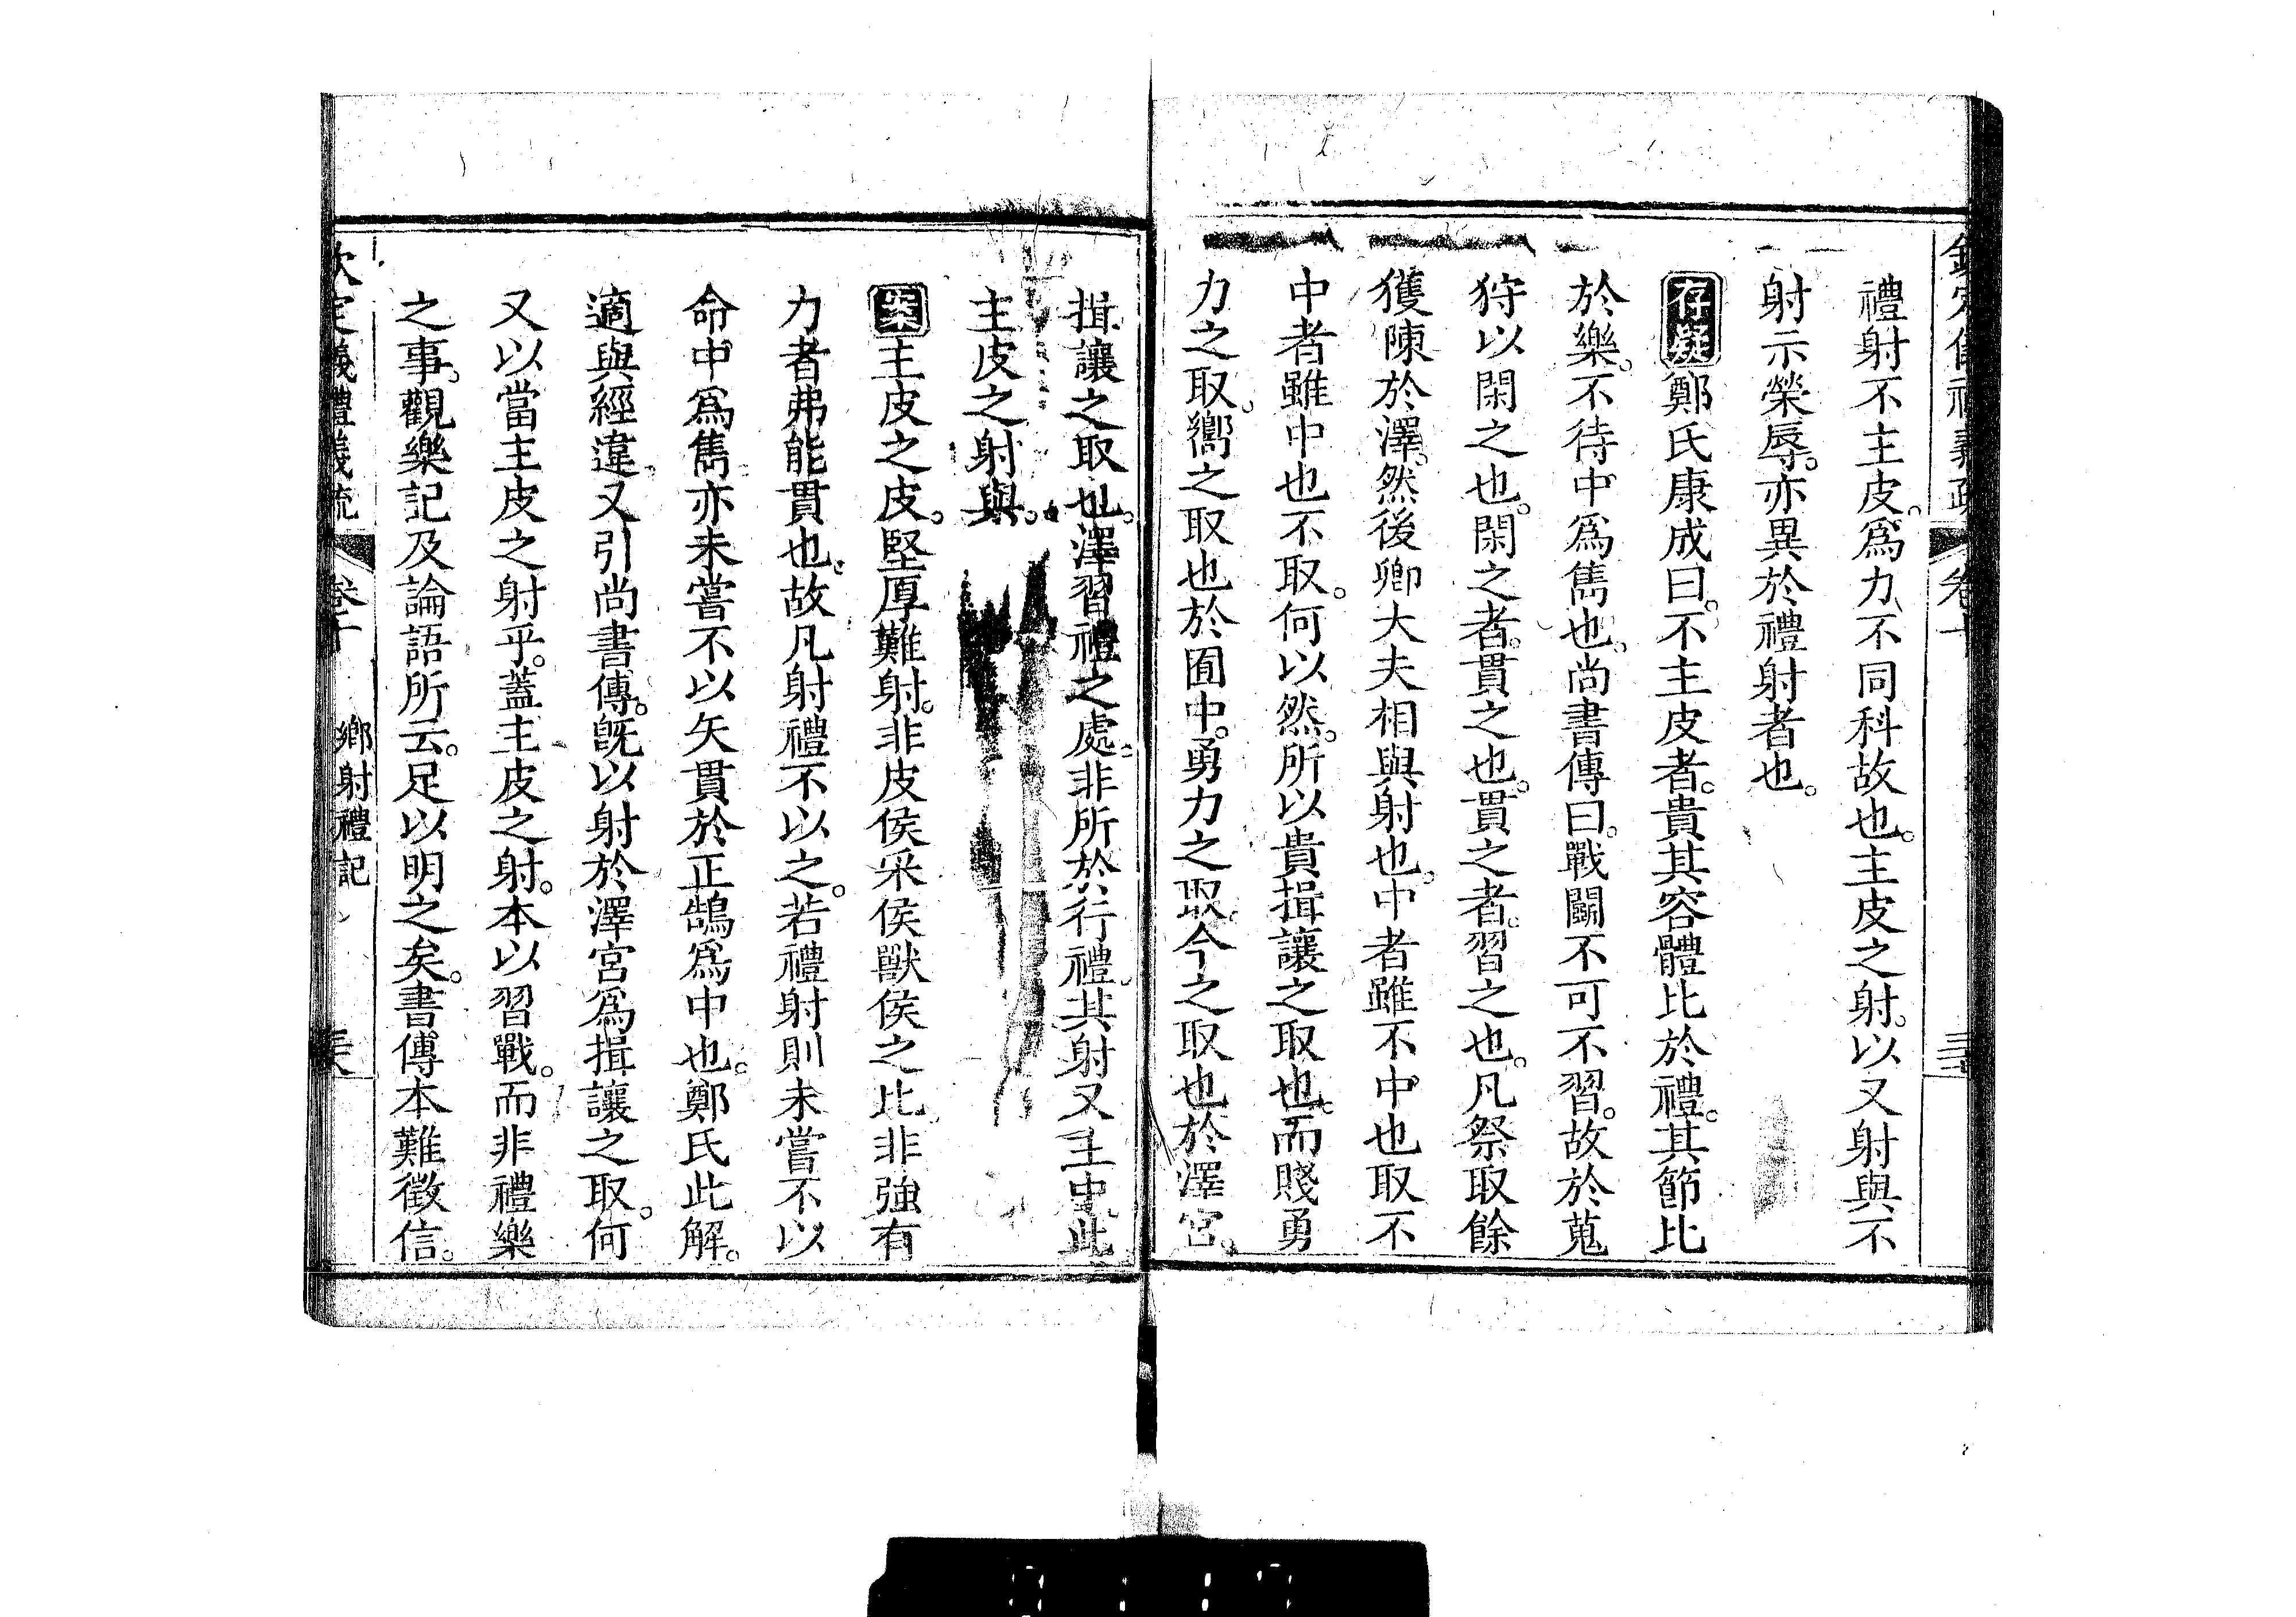 禮射不主皮。爲力不同科故也。主皮之射。以又射與不
射示榮辱。亦異於禮射者也。
存疑鄭氏康成曰。不主皮者。貴其容體比於禮。其節比
於樂。不待中爲雋也。尚書傳曰。戰鬭不可不習。故於蒐
狩以閑之也。閑之者。貫之也。貫之者。習之也。凡祭取餘
獲陳於澤。然後卿大夫相與射也。中者雖不中也取不
中者雖中也不取。何以然。所以貴揖讓之取也。而賤勇
力之取。嚮之取也於囿中。勇力之取。今之取也於澤宮。
揖讓之取也。澤習禮之處。非所於行禮其射又主中此
主皮之射與。
案主皮之皮。堅厚難射。非皮侯采侯獸侯之比非強有
力者弗能貫也。故凡射禮不以之。若禮射則未嘗不以
命中爲雋。亦未嘗不以矢貫於正鵠爲中也。鄭氏此解。
適與經違。又引尚書傳。旣以射於澤宮爲揖讓之取。何
又以當主皮之射乎。蓋主皮之射。本以習戰。而非禮樂
之事。觀樂記及論語所云。足以明之矣。書傳本難徵信。
欽定儀禮義疏 卷十 鄉射禮記